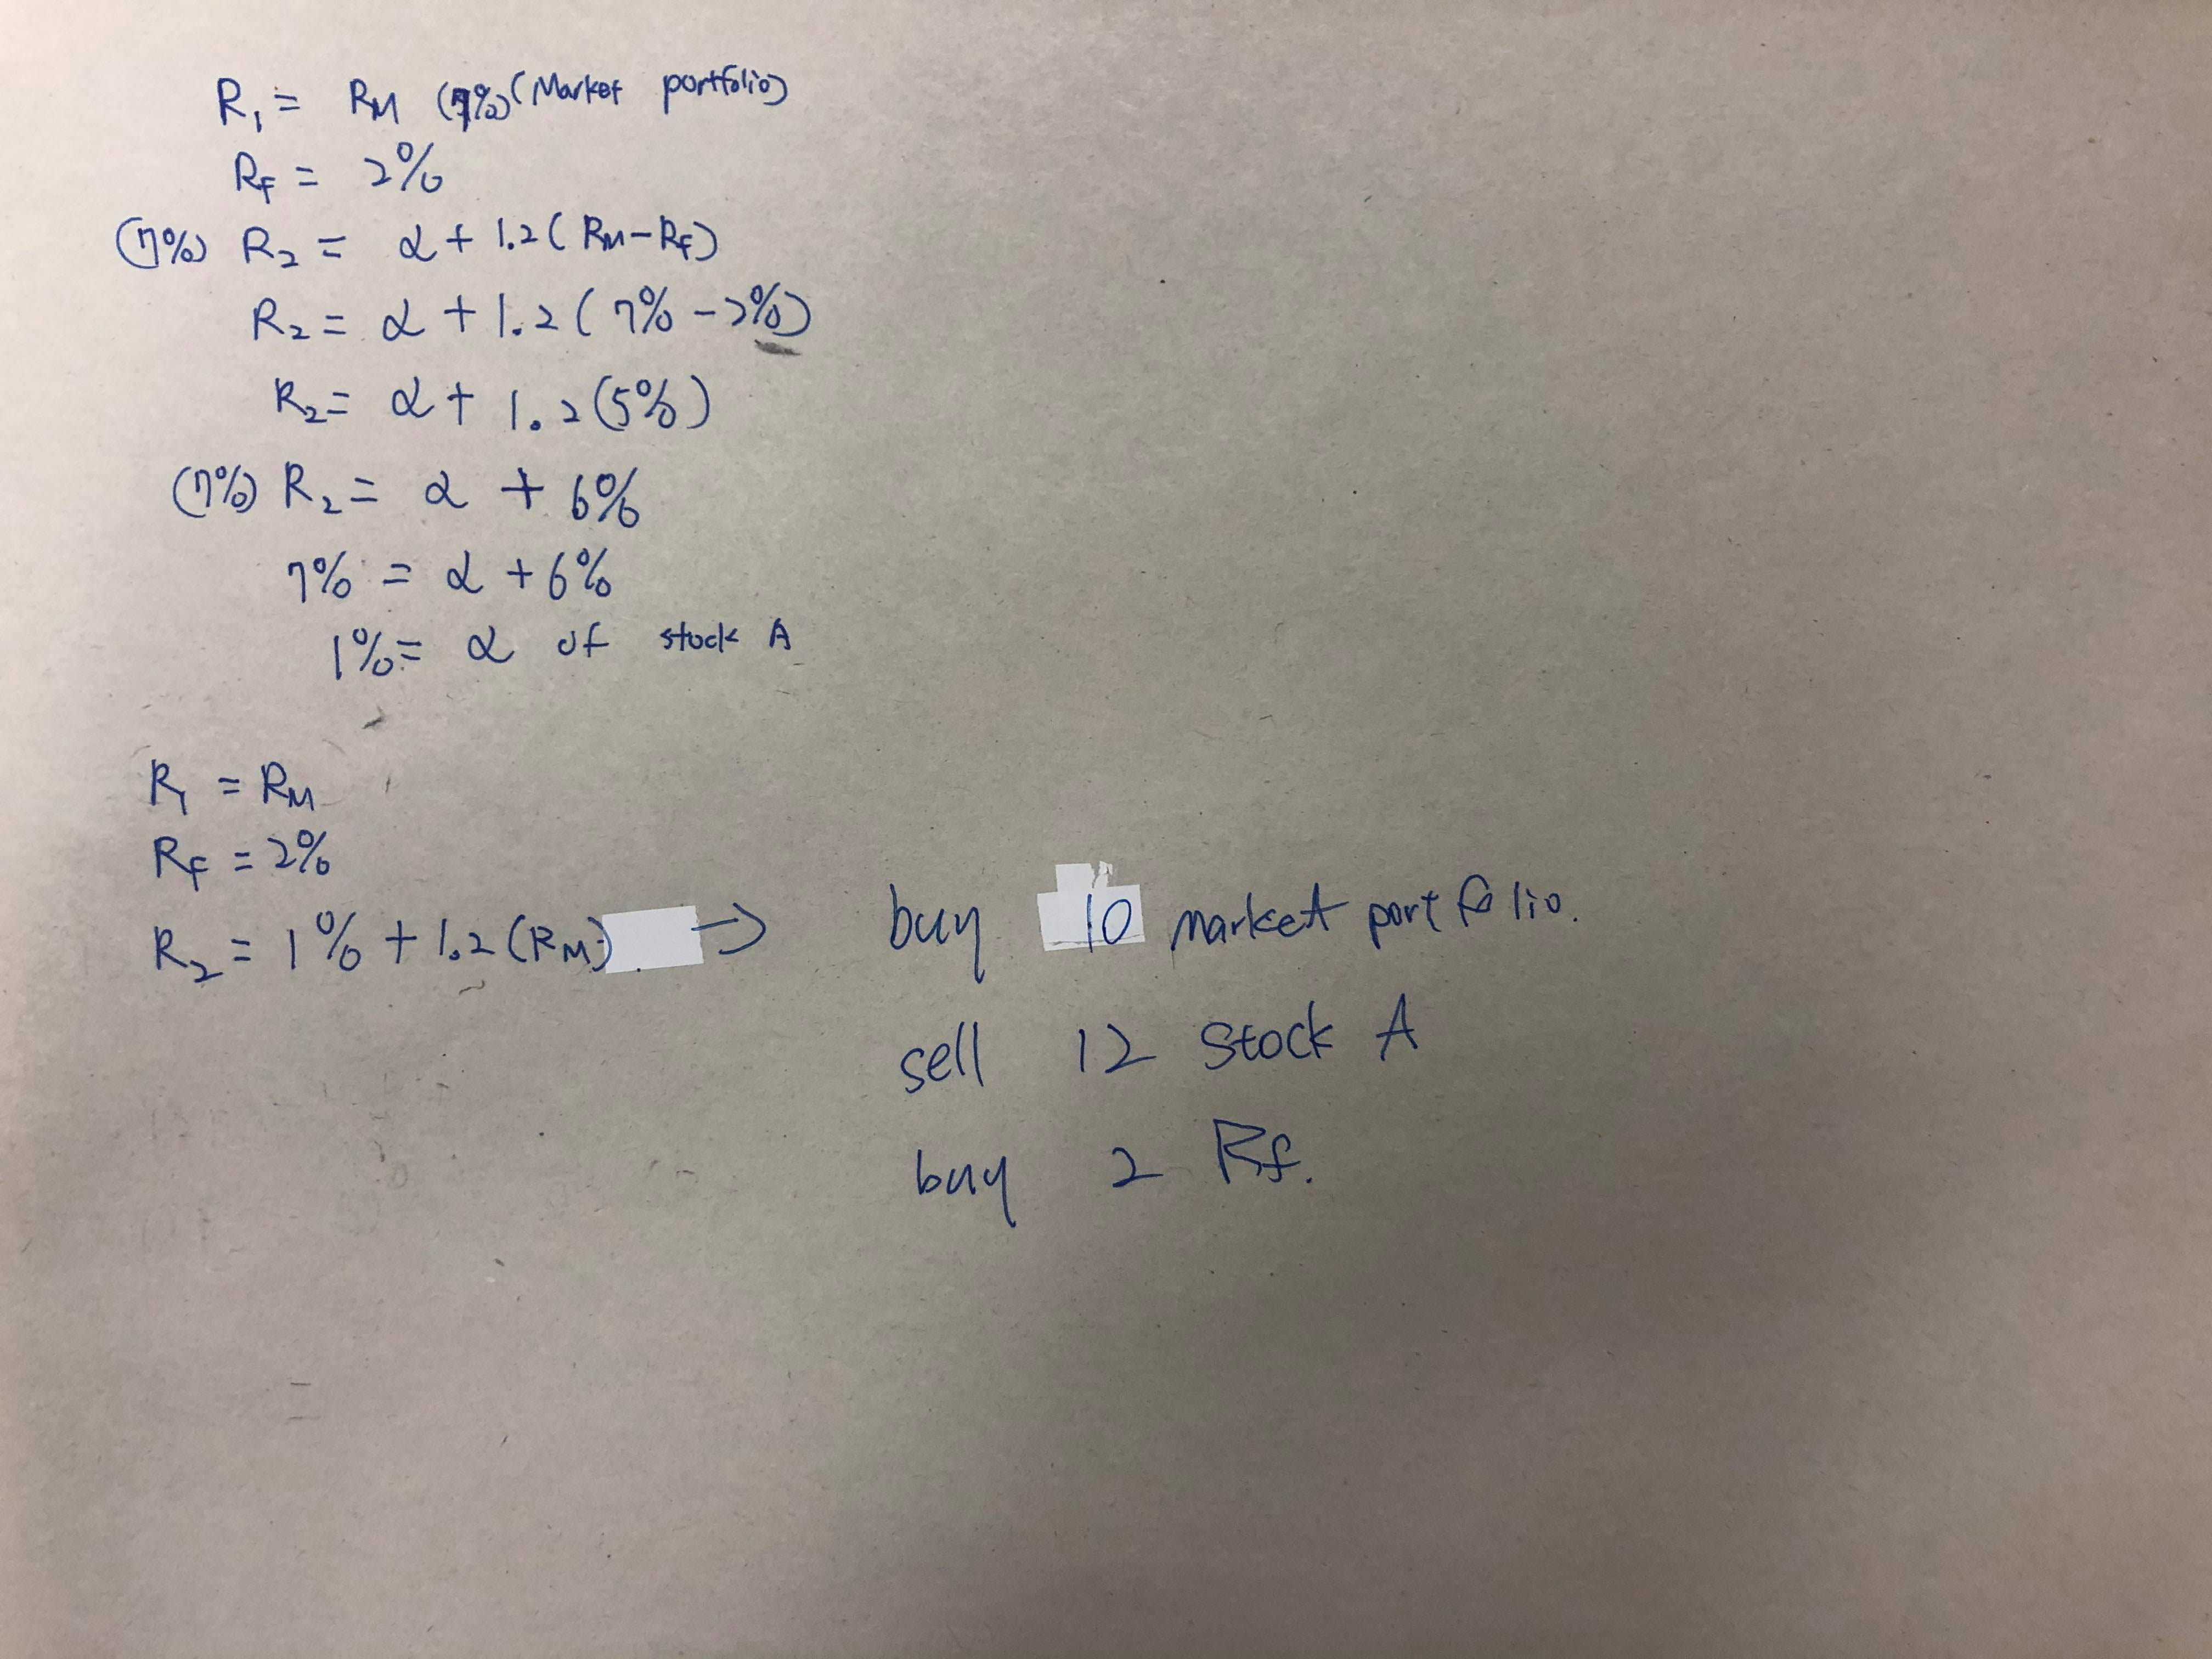 R₁ = RM (7%) (Market portfolio)
RF = 2%
(7%) R₂ = α + 1.2 ( RM - RF )
R₂ = α + 1.2 ( 7% - 2% )
R₂ = α + 1.2 (5%)
(7%) R₂ = α + 6%
7% = α + 6%
1% = α of stock A
R₁ = RM
RF = 2%
R₂ = 1% + 1.2 (RM) → buy 10 market portfolio.
sell 12 stock A
buy 2 Rf.